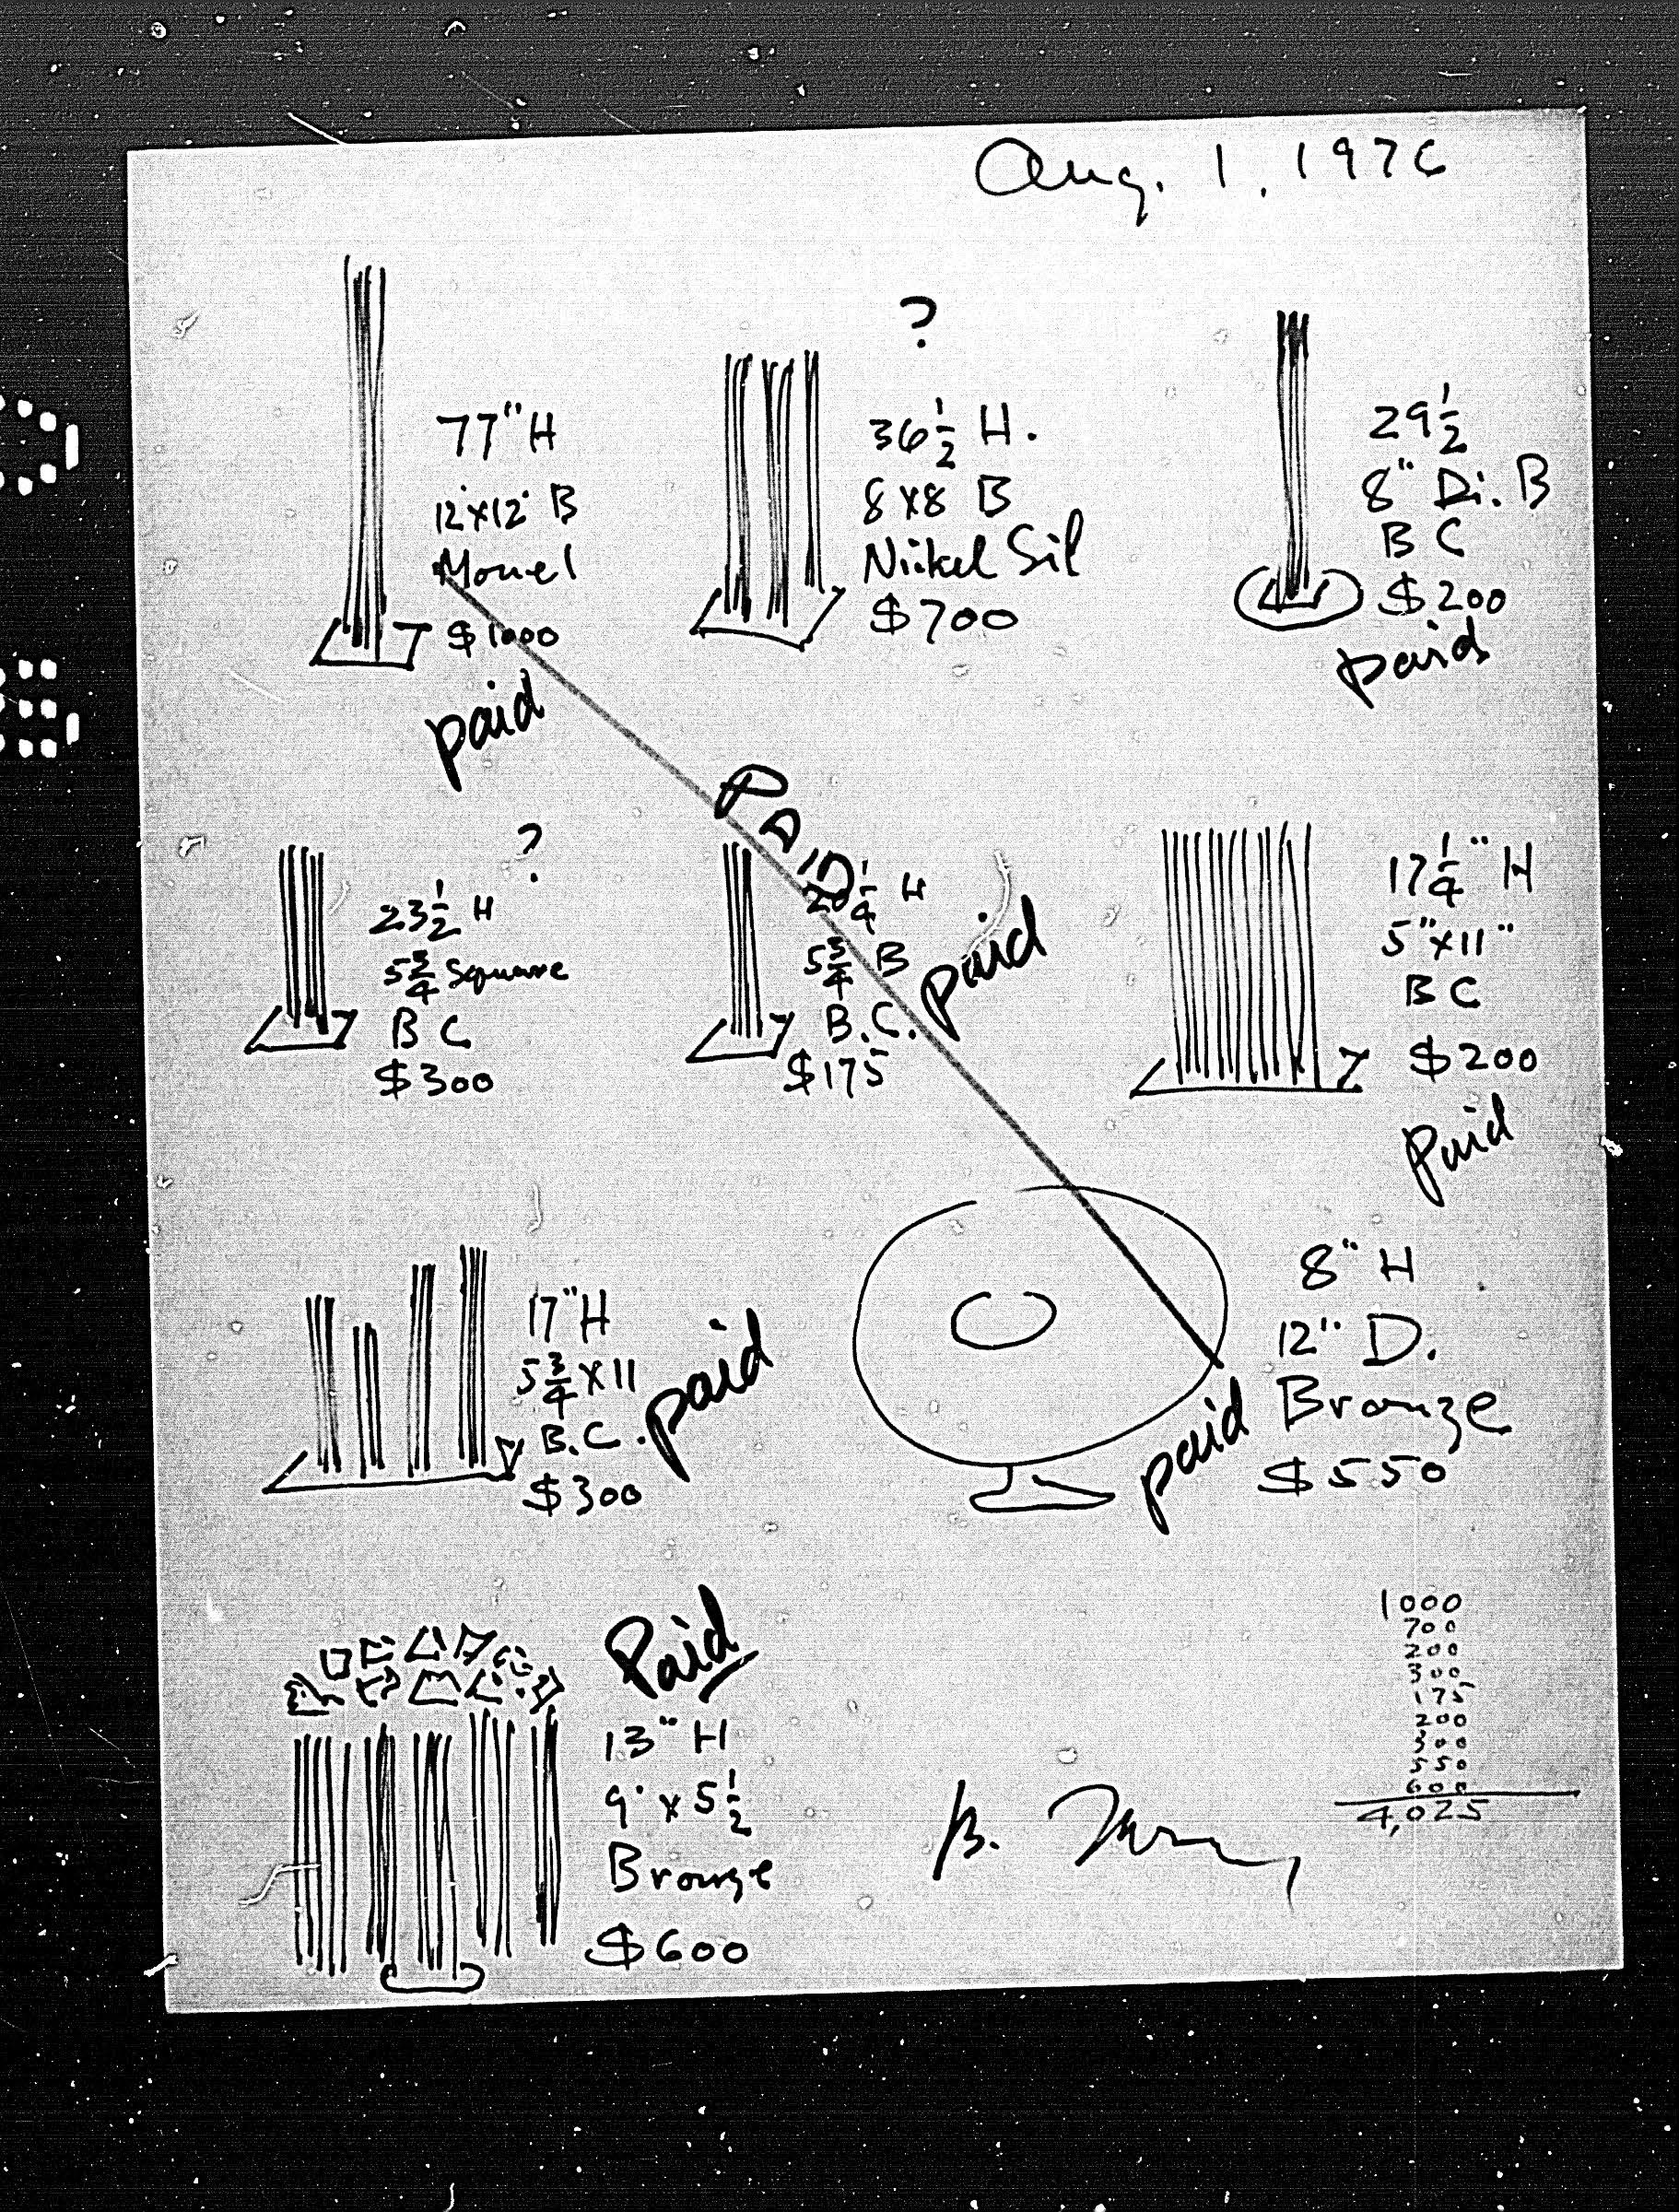 Aug. 1, 1976
77" H
12"x12" B
Monel
$1000
paid
?
36 1/2 H.
8 x 8 B
Nickel Sil
$700
29 1/2
8" Di. B
B C
$200
paid
?
23 1/2 H
5 3/4 Square
B C
$300
PAID
20 1/4 H
5 3/4 B
B.C.
$175
paid
17 1/4" H
5"x11"
B C
$200
Paid
17" H
5 3/4 x 11
B.C.
$300
paid
8" H
12" D.
Bronze
$550
paid
Paid
13" H
9" x 5 1/2
Bronze
$600
1000
700
200
300
175
200
300
550
600
4,025
B.